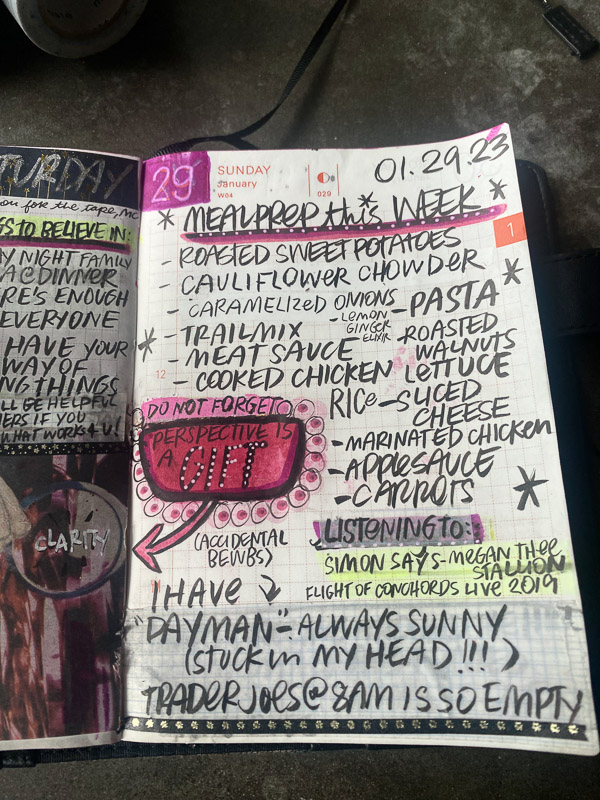 TURDAY
you for the tape, MC
GS TO BELIEVE IN:
Y NIGHT FAMILY
DINNER
RE'S ENOUGH
EVERYONE
HAVE YOUR
WAY OF
NG THINGS
LL BE HELPFUL
ERS IF YOU
WHAT WORKS 4 U!
CLARITY
29
SUNDAY
January
W04
029
01.29.23
1
* MEALPREP this WEEK *
- ROASTED SWEET POTATOES
- CAULIFLOWER CHOWDER
- CARAMELIZED ONIONS
- LEMON
GINGER
ELIXIR
- TRAILMIX
- MEAT SAUCE
12
- COOKED CHICKEN
- PASTA
- ROASTED
WALNUTS
LETTUCE
RICE - SLICED
CHEESE
- MARINATED CHICKEN
- APPLESAUCE
- CARROTS
DO NOT FORGET
PERSPECTIVE IS
A GIFT
(ACCIDENTAL
BEWBS)
LISTENING TO:
SIMON SAYS - MEGAN THEE
STALLION
FLIGHT OF CONCHORDS LIVE 2019
I HAVE
"DAYMAN" - ALWAYS SUNNY
(STUCK in MY HEAD!!!)
TRADER JOES @ 8AM IS SO EMPTY